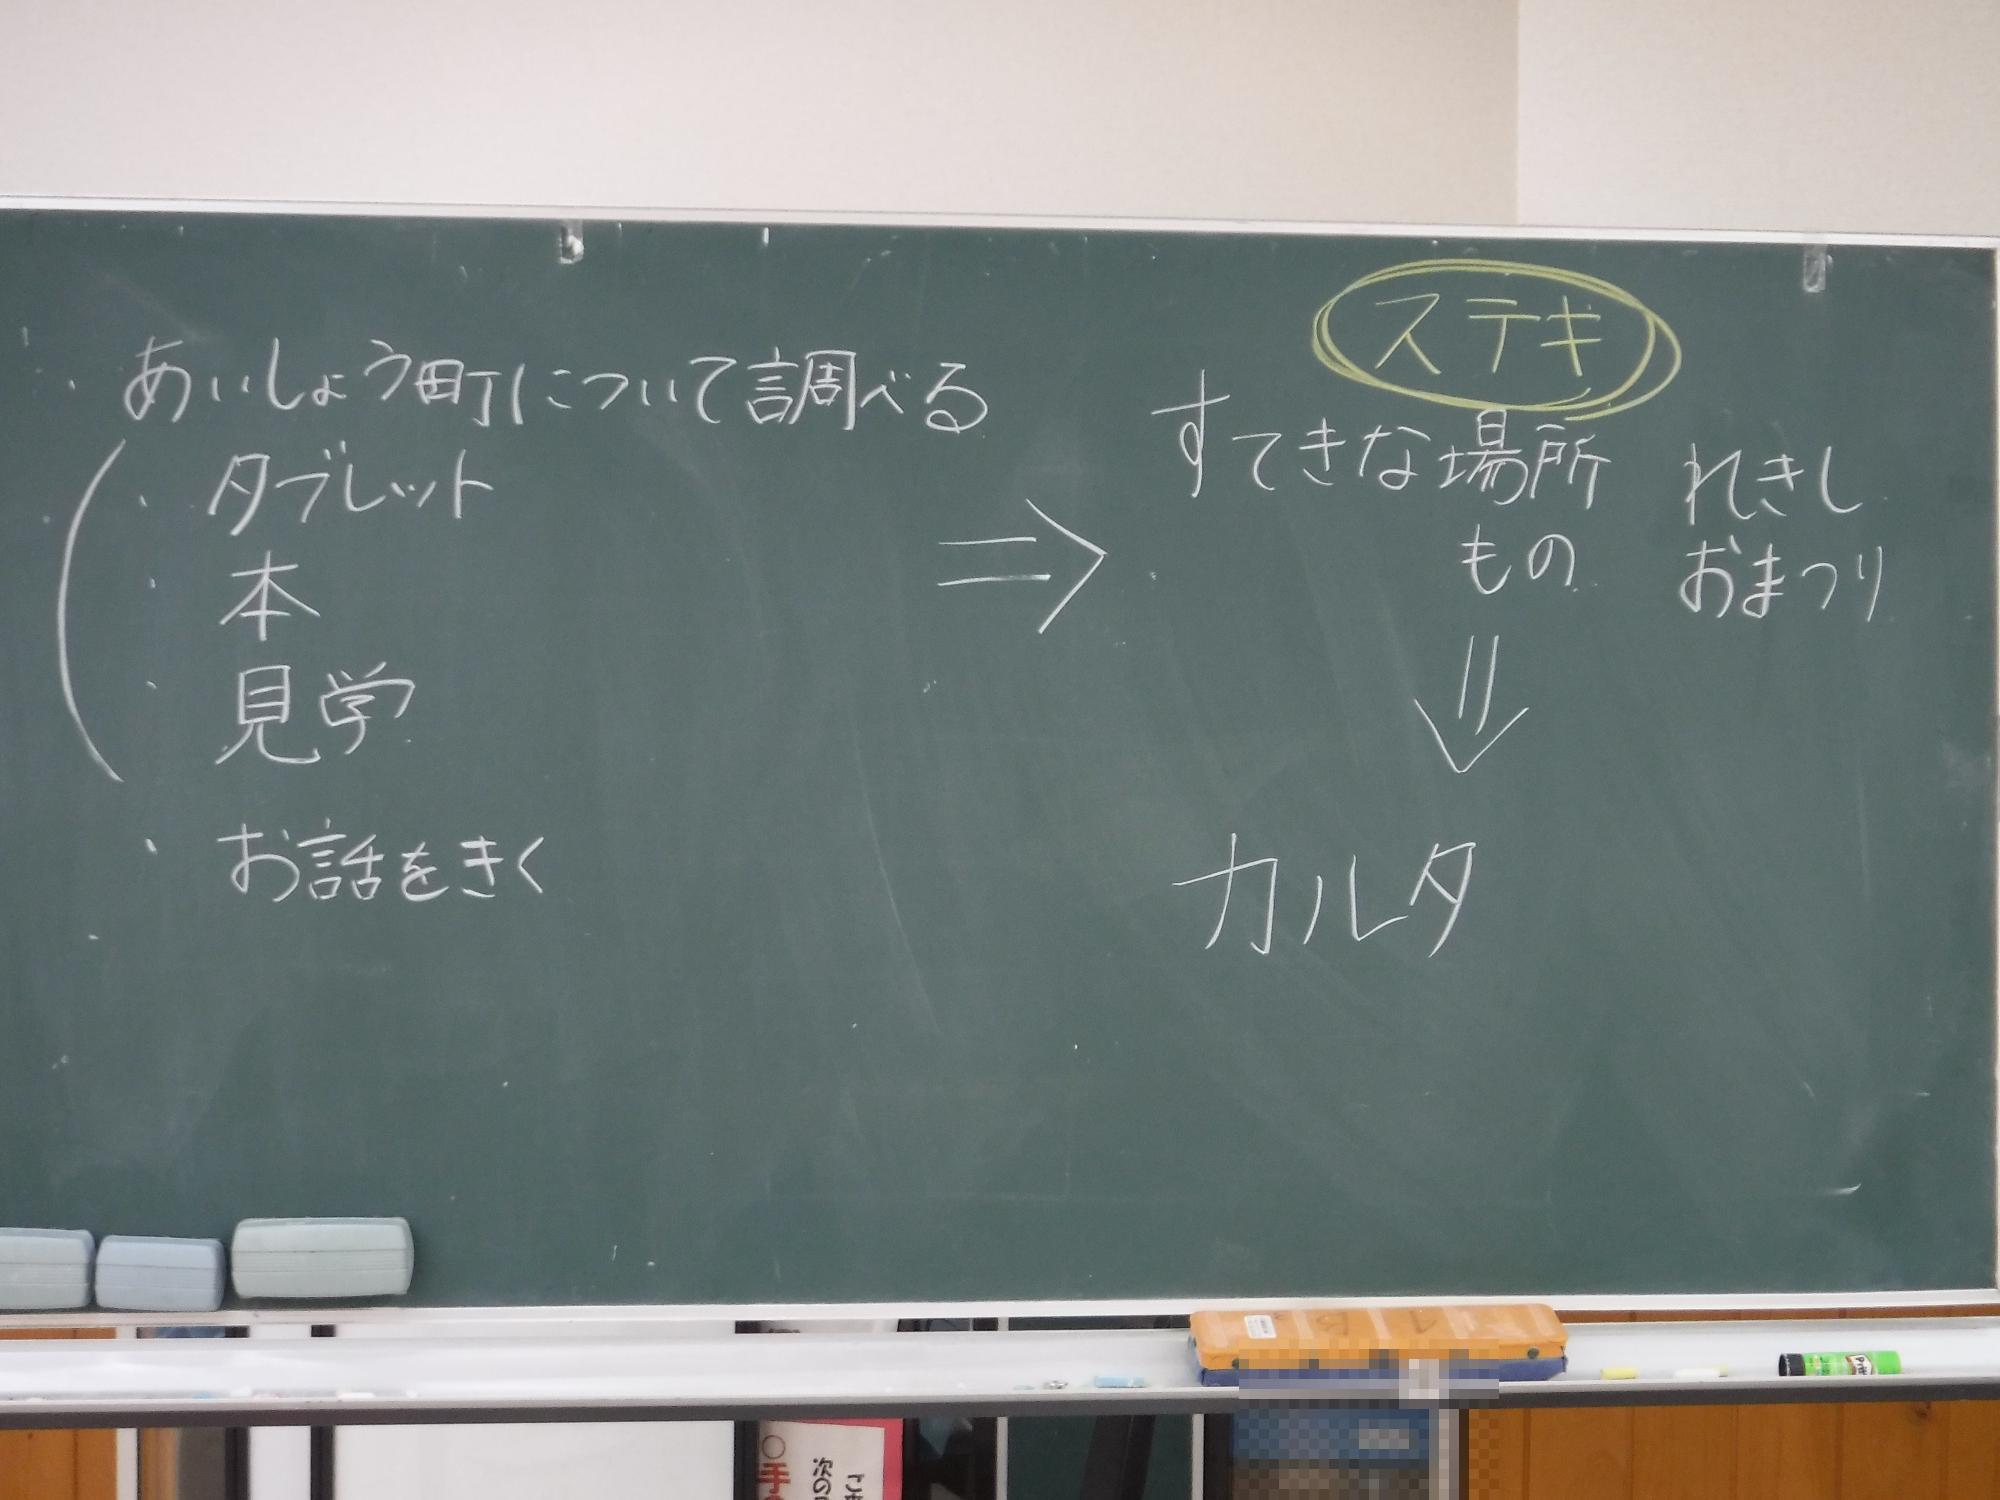 あいしょう町について調べる
・タブレット
・本
・見学
・お話をきく
⇒
ステキ
すてきな場所
もの
れきし
おまつり
⇓
カルタ
Pritt
○手
次の